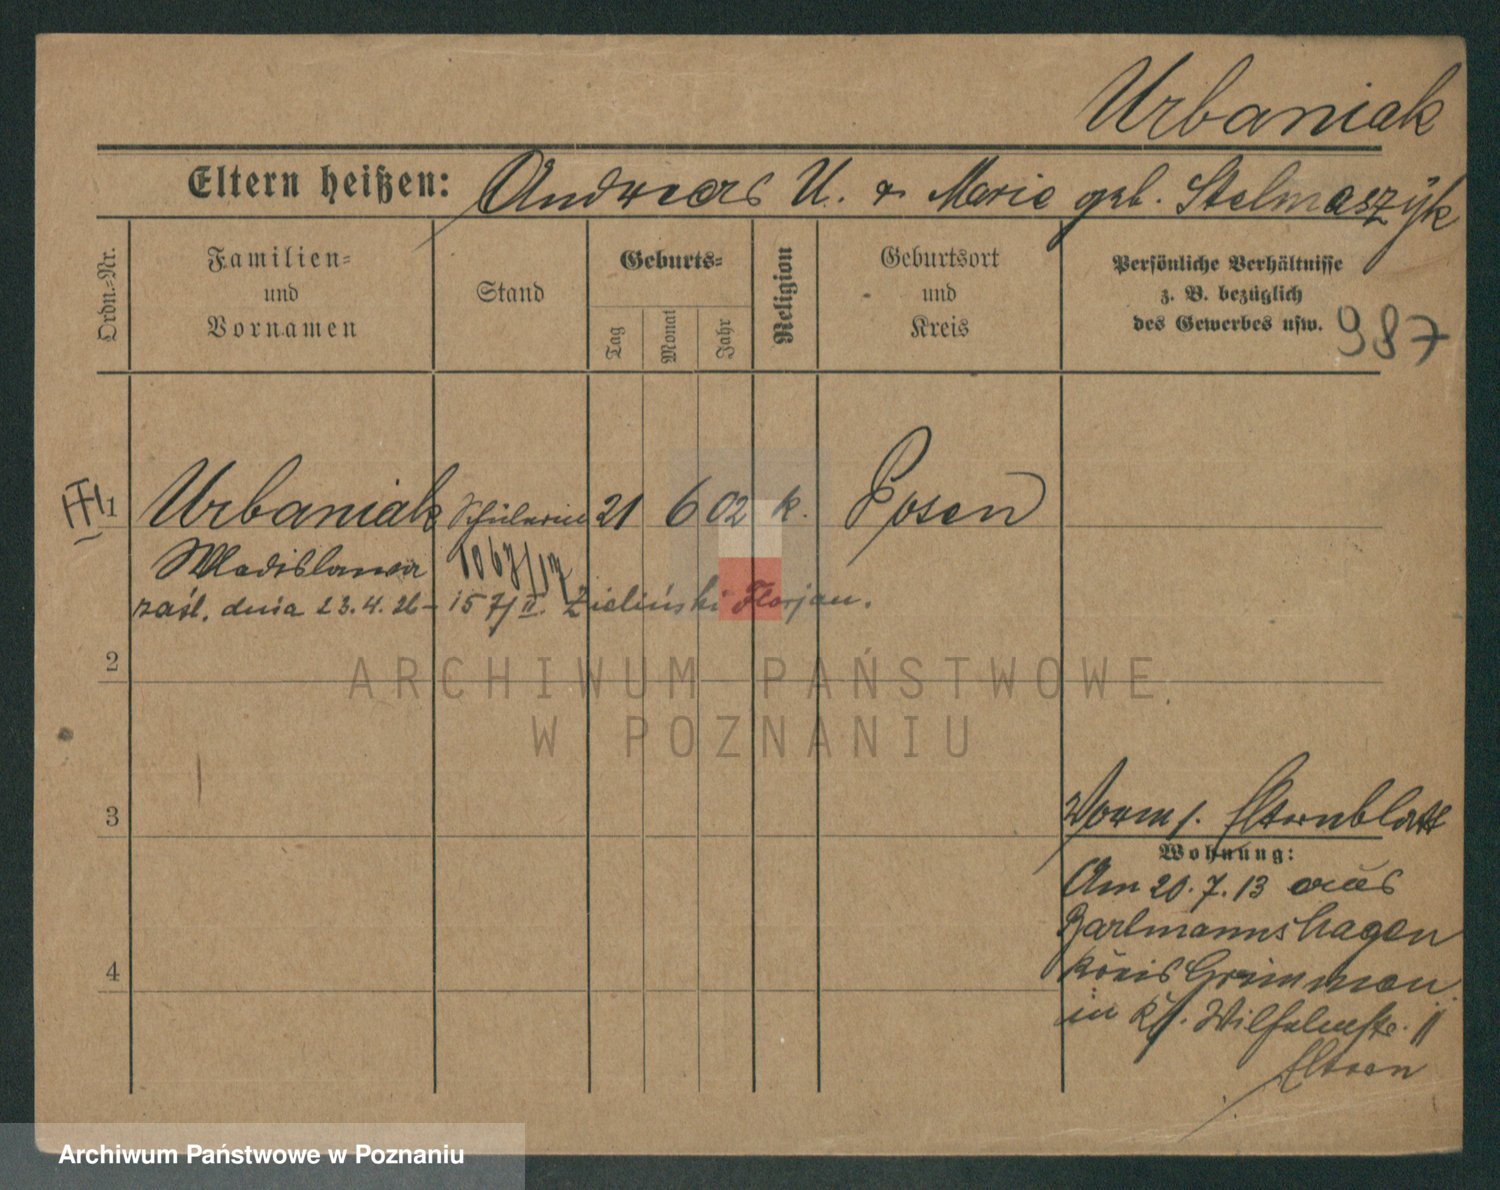 Urbaniak
Eltern heißen: Andreas U. & Marie geb. Stelmaszyk
Ordn.-Nr.
Familien-
und
Vornamen
Stand
Geburts-
Tag
Monat
Jahr
Religion
Geburtsort
und
Kreis
Persönliche Verhältnisse
z. B. bezüglich
des Gewerbes usw.
987
1 Urbaniak Schülerin 21 6 02 k. Posen
Wladislawa 1067/17
zaśl. dnia 23.4.26 - 157/II. Zieliński Florjan.
2
ARCHIWUM PAŃSTWOWE
W POZNANIU
3
Elternblatt
Wohnung:
Am 20.7.13 aus
Zarlmannshagen
Kreis Grimmen
in Wilhelmstr. 11
Eltern
4
Archiwum Państwowe w Poznaniu